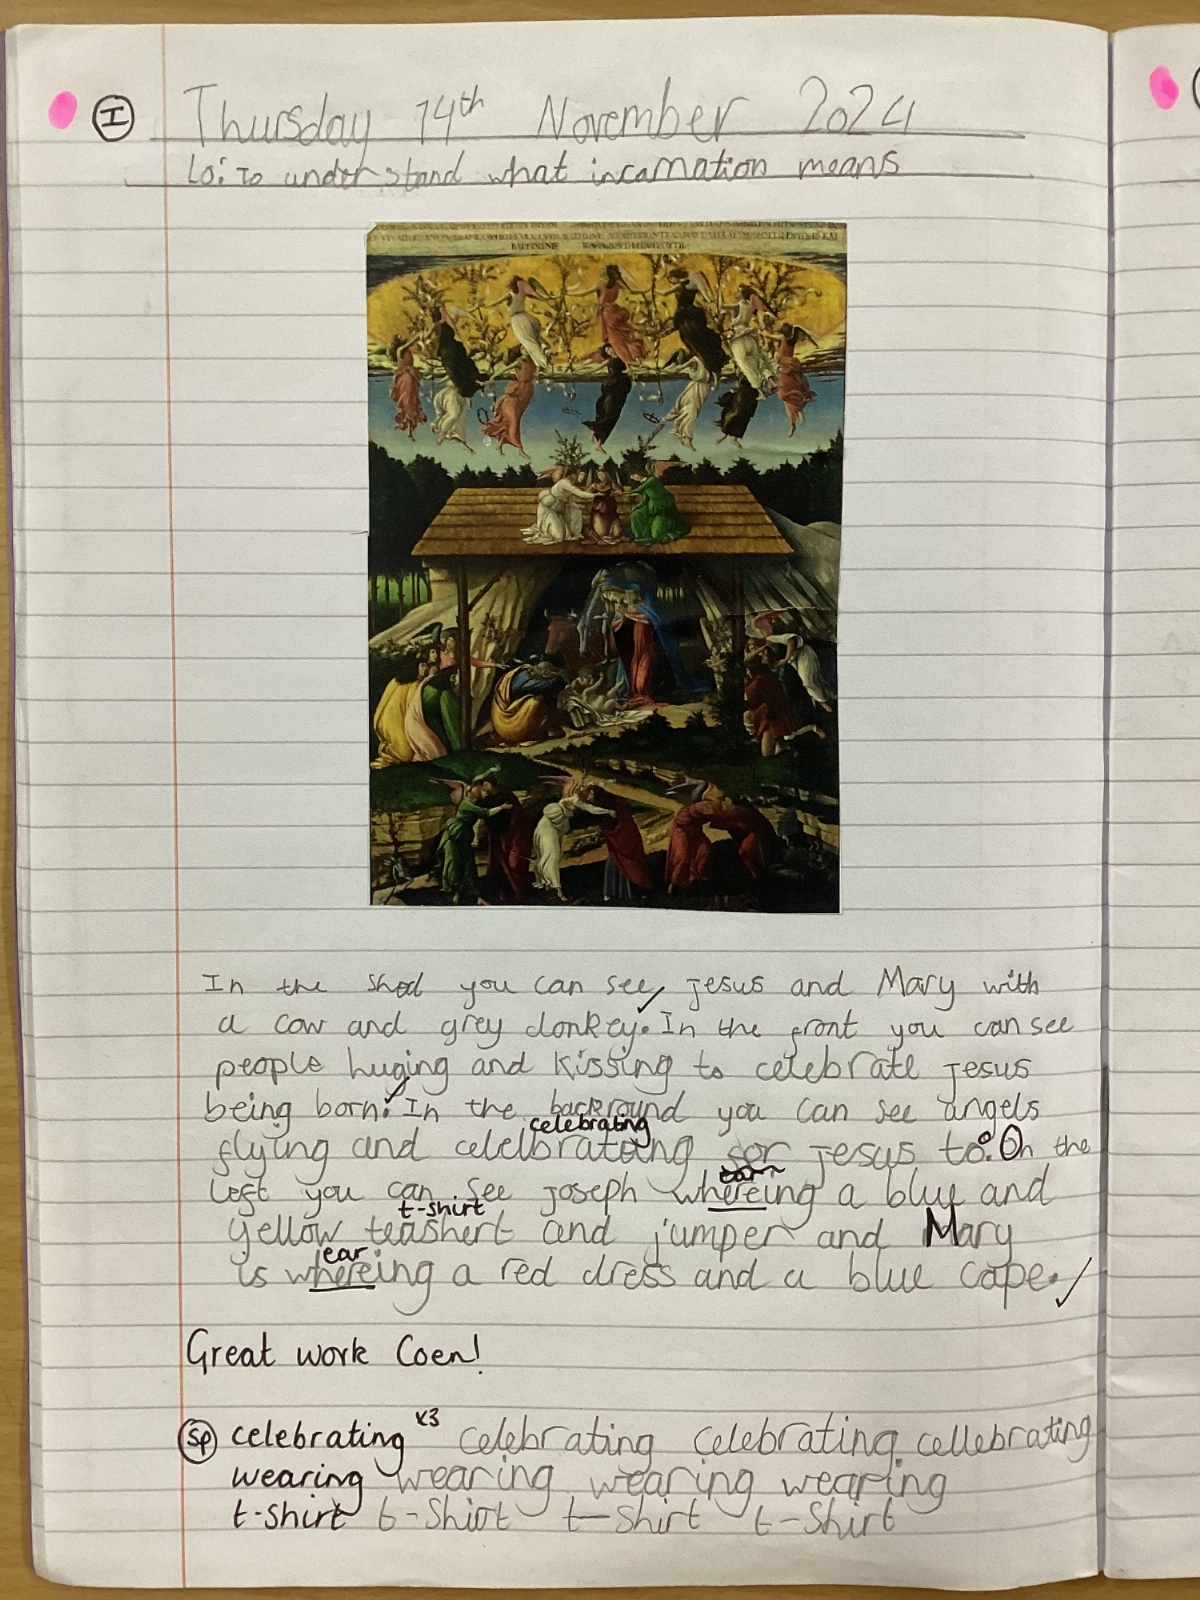 I
Thursday 14th November 2024
Lo: To understand what incarnation means
In the shed you can see, jesus and Mary with
a cow and grey donkey. In the front you can see
people huging and kissing to celebrate jesus
being born. In the backround you can see angels
celebrating
flying and celelbrateing for jesus to. On the
left you can see joseph whereing a blue and
t-shirt
yellow teashert and jumper and Mary
ear
is whereing a red dress and a blue cape.
Great work Coen!
Sp celebrating x3 celebrating celebrating cellebrating
wearing wearing wearing wearing
t-shirt t-shirt t-shirt t-shirt